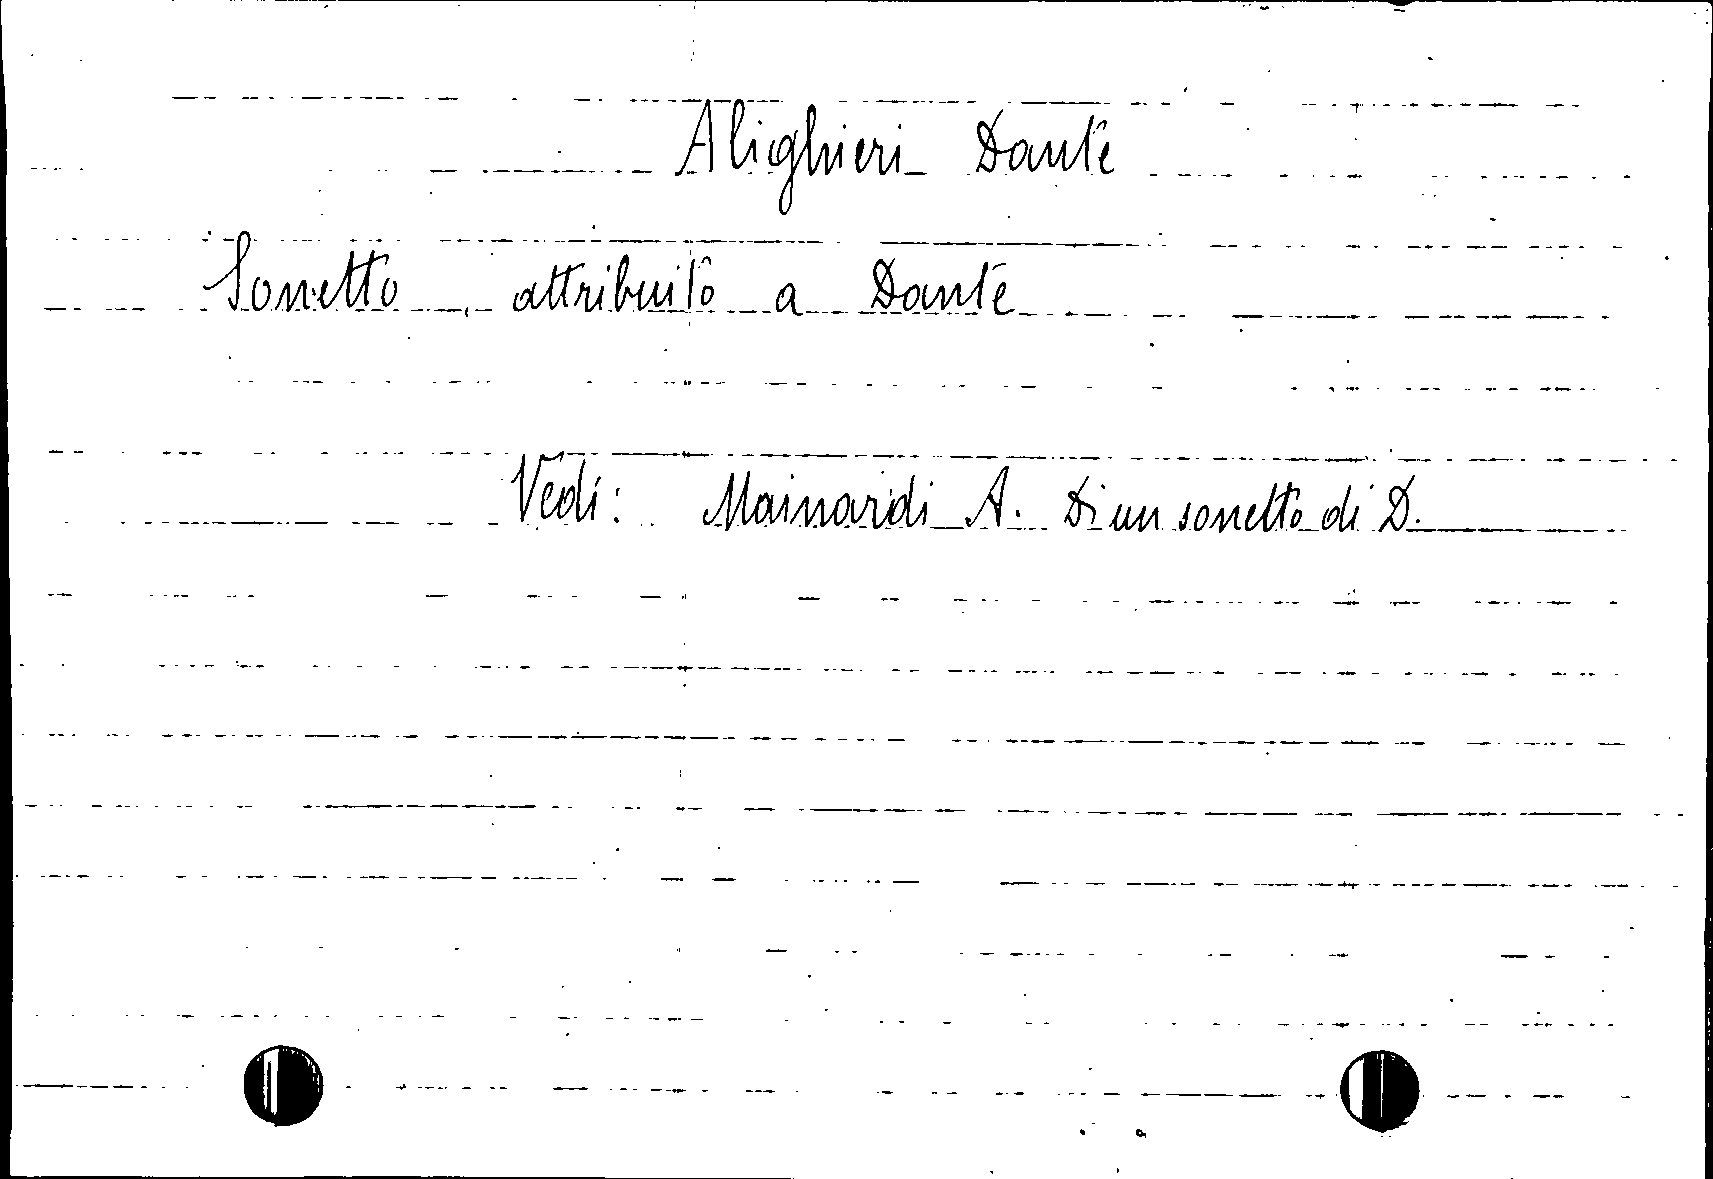 Alighieri Dante
Sonetto attribuito a Dante
Vedi: Mainardi A. Di un sonetto di D.